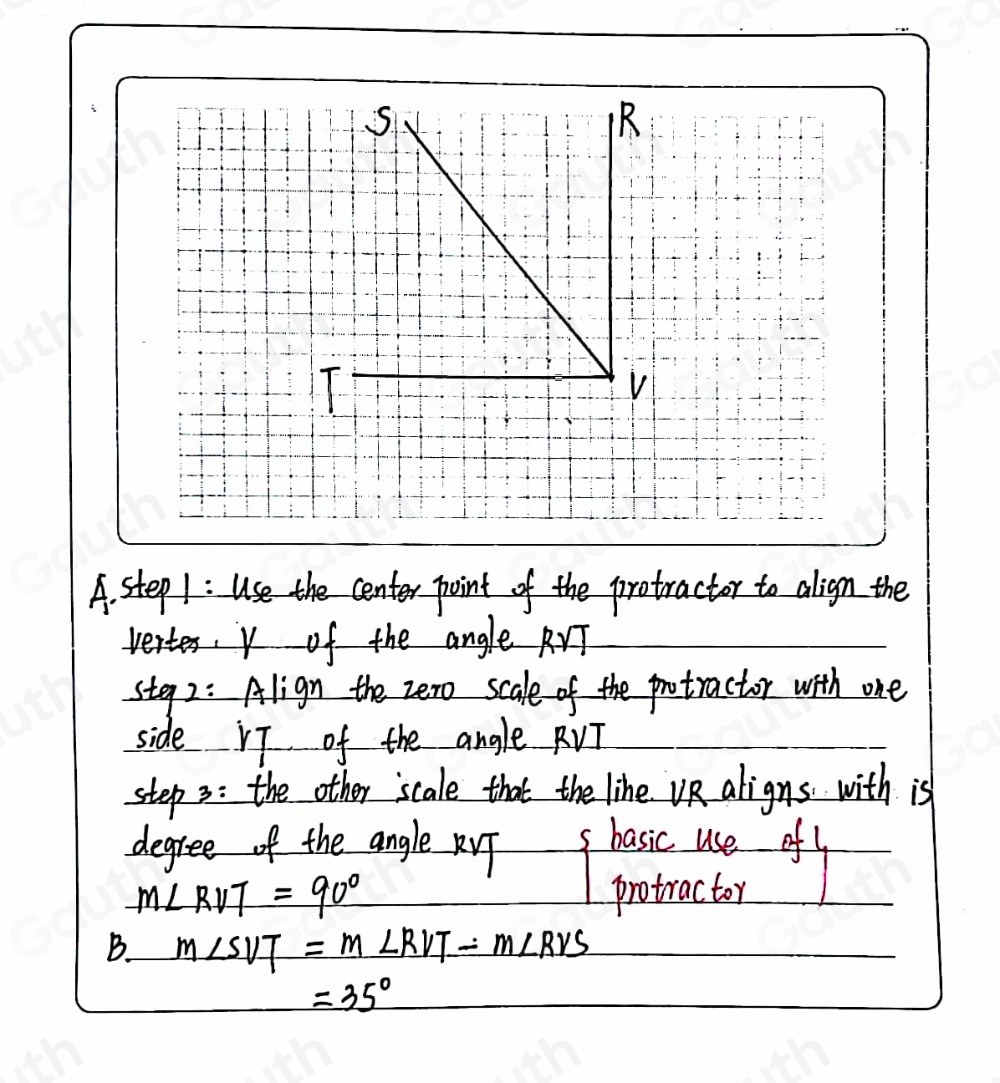 S R
T V
A. step 1: Use the center point of the protractor to align the
vertes. V of the angle RVT
step 2: Align the zero scale of the protractor with one
side VT of the angle RVT
step 3: the other scale that the line VR aligns with is
degree of the angle RVT
m∠RVT = 90°
basic use of
protractor
B. m∠SVT = m∠RVT - m∠RVS
= 35°